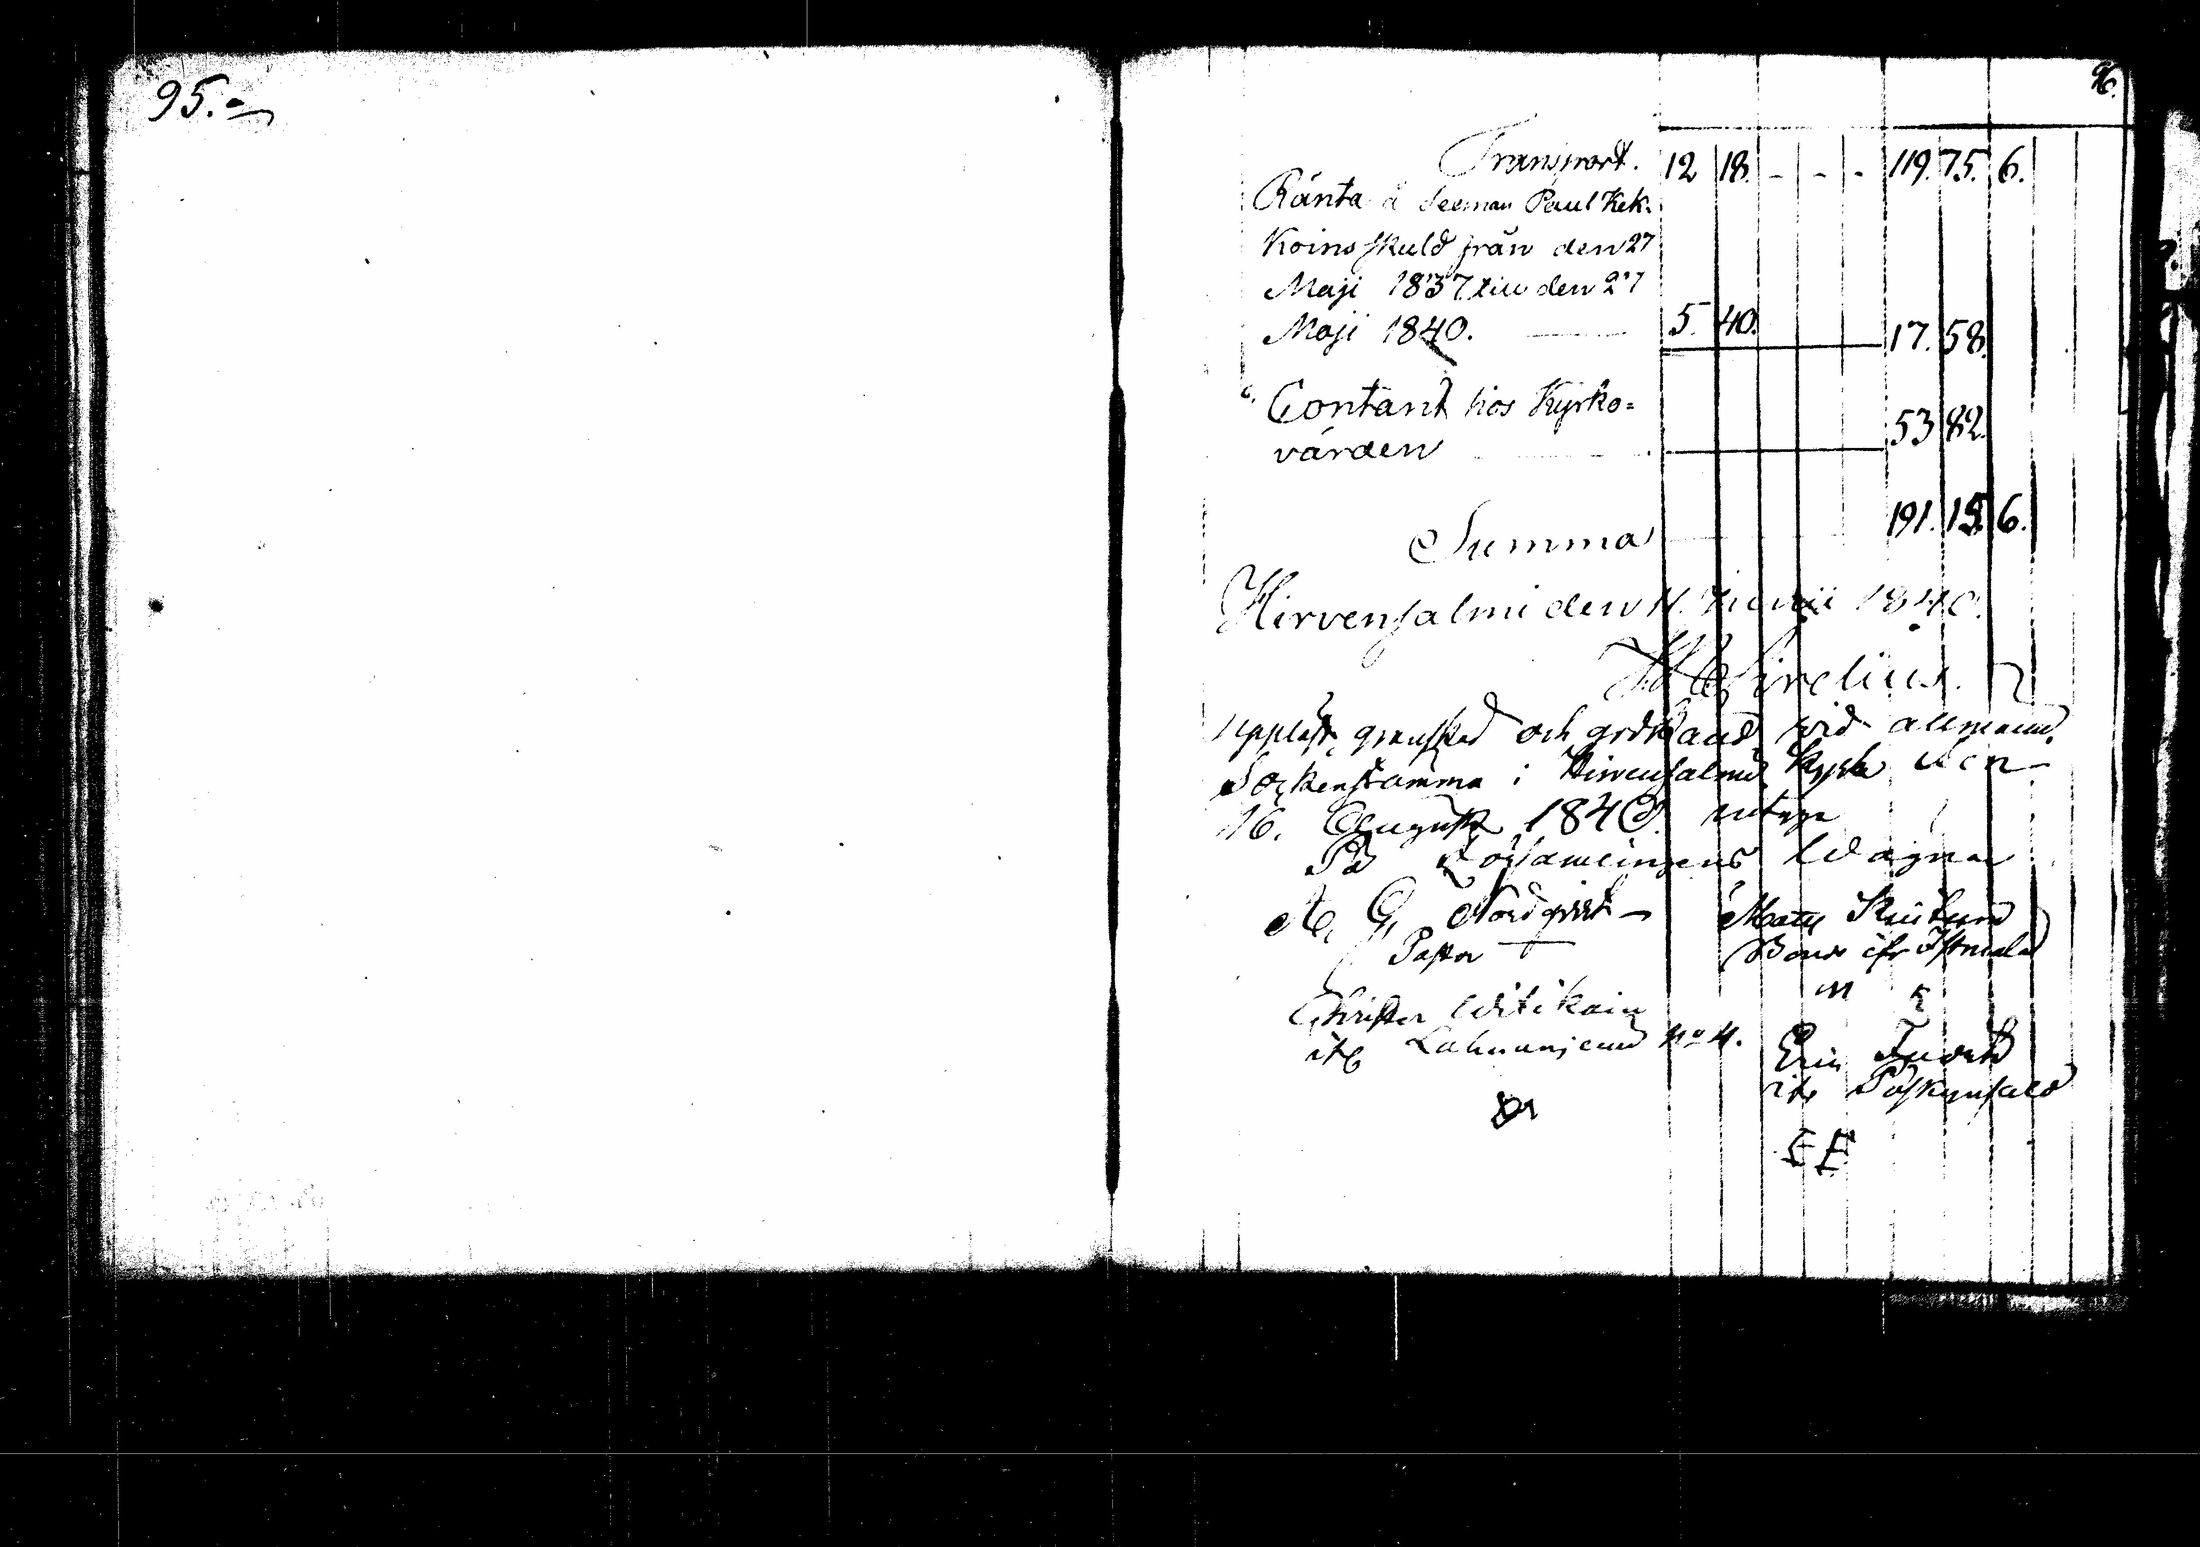 95.
96.
Transport. 12 18. - - - 119. 75. 6.
Ränta å Paul Kek-
koins skuld från den 27
Maji 1837 till den 27
Maji 1840. 5. 40. 17. 58.
Contant hos Kyrko=
värden 53 82.
Summa 191. 15. 6.
Hirvensalmi den Junii 1840.
Sirelius.
Uppläst, granskad och godkänd wid allmänn
Sockenstämma i Hirvensalmi Kyrka den
16. August 1840. intyga
På Församlingens Wägnar
A. G. Nordqvist
Pastor
Matts
Bonde ifr
Christer Witikain
ifr No 4.
Eric
ifr
E E